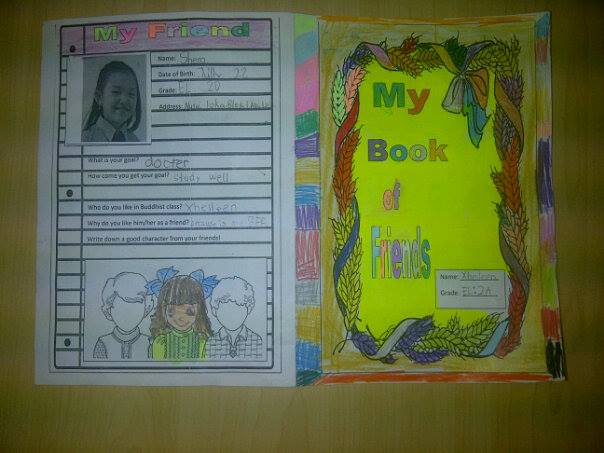 My Friend
Name: Shera
Date of Birth: July 22
Grade: EL 2D
Address:
What is your goal? docter
How come you get your goal? study well
Who do you like in Buddhist class? Xheileen
Why do you like him/her as a friend?
Write down a good character from your friends!
My
Book
of
Friends
Name: Xheileen
Grade: EL:2A